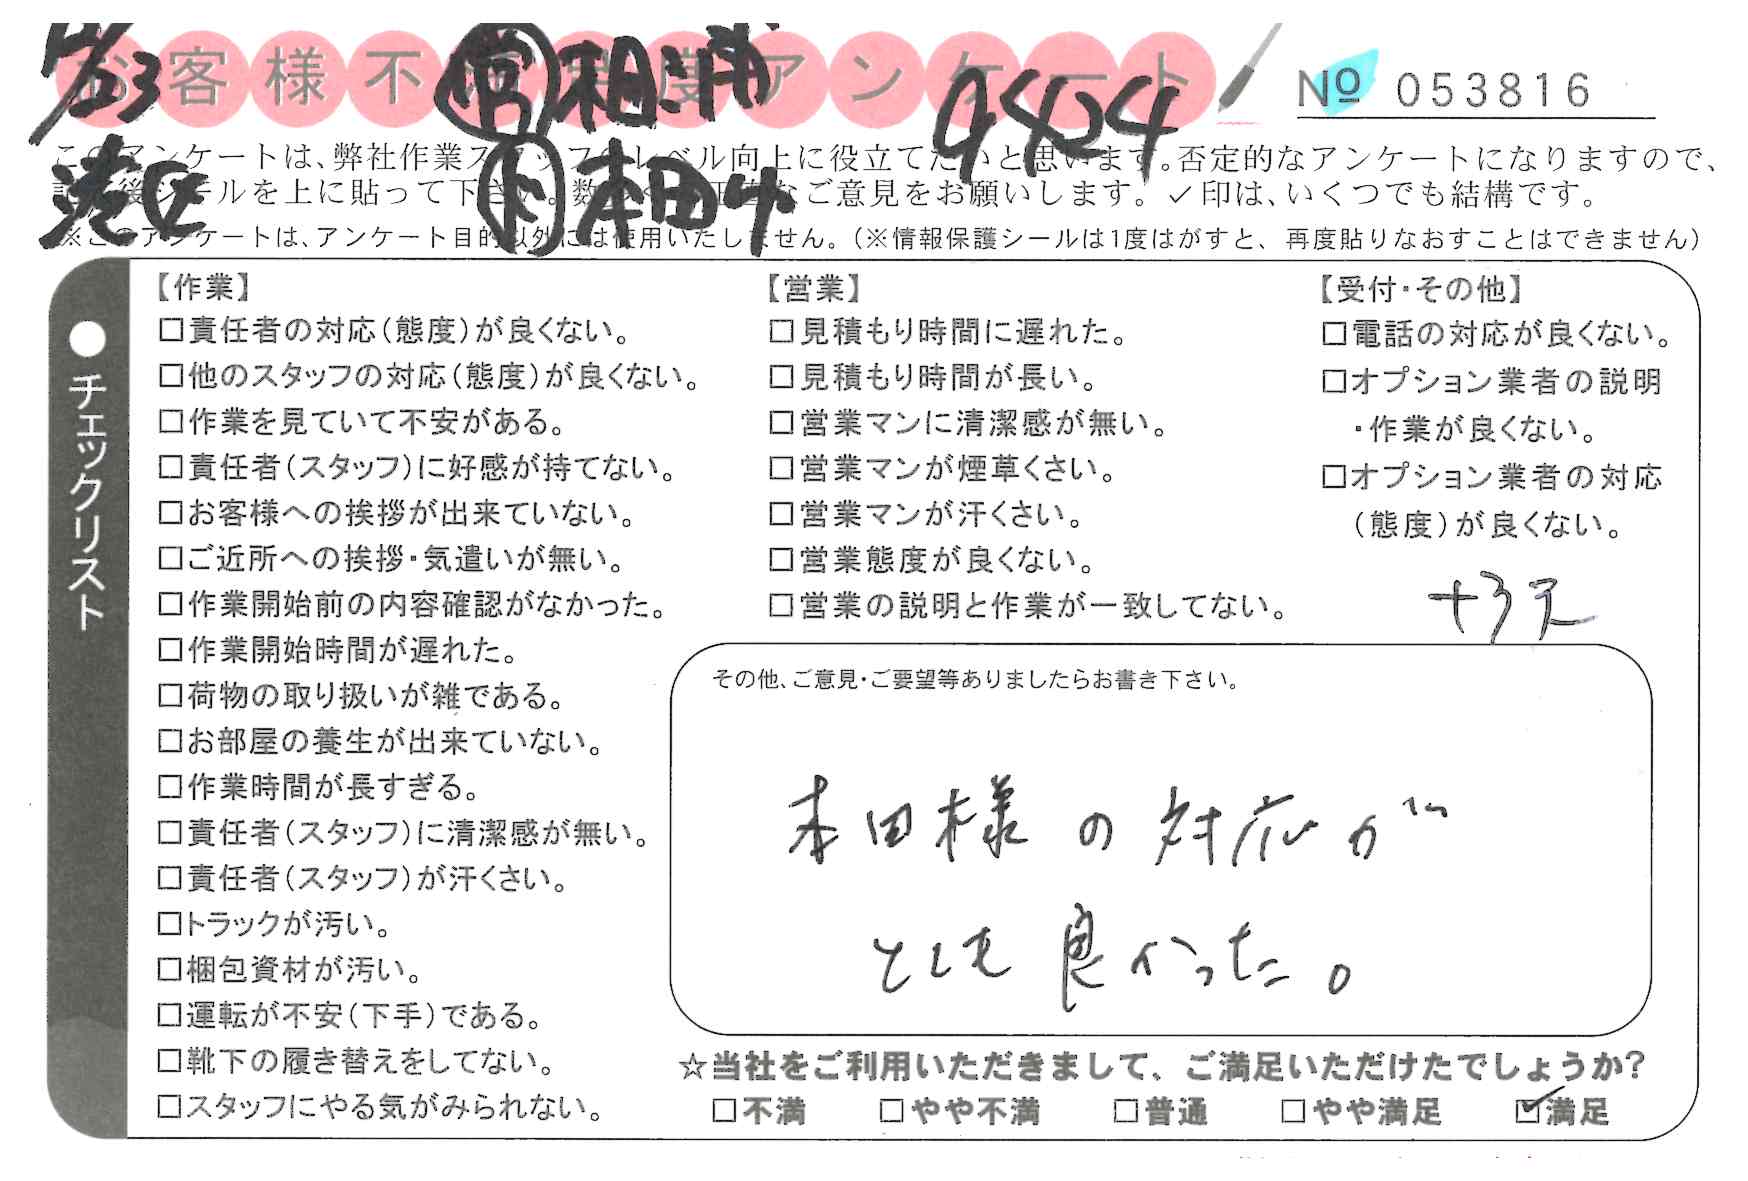 お客様不満度アンケート
No 053816
12/23
営 相浦
9424
港区
本田サ
このアンケートは、弊社作業スタッフのレベル向上に役立てたいと思います。否定的なアンケートになりますので、
記入後シールを上に貼って下さい。数多くの正直なご意見をお願いします。✓印は、いくつでも結構です。
※このアンケートは、アンケート目的以外には使用いたしません。（※情報保護シールは1度はがすと、再度貼りなおすことはできません）
●チェックリスト
【作業】
□責任者の対応（態度）が良くない。
□他のスタッフの対応（態度）が良くない。
□作業を見ていて不安がある。
□責任者（スタッフ）に好感が持てない。
□お客様への挨拶が出来ていない。
□ご近所への挨拶・気遣いが無い。
□作業開始前の内容確認がなかった。
□作業開始時間が遅れた。
□荷物の取り扱いが雑である。
□お部屋の養生が出来ていない。
□作業時間が長すぎる。
□責任者（スタッフ）に清潔感が無い。
□責任者（スタッフ）が汗くさい。
□トラックが汚い。
□梱包資材が汚い。
□運転が不安（下手）である。
□靴下の履き替えをしてない。
□スタッフにやる気がみられない。
【営業】
□見積もり時間に遅れた。
□見積もり時間が長い。
□営業マンに清潔感が無い。
□営業マンが煙草くさい。
□営業マンが汗くさい。
□営業態度が良くない。
□営業の説明と作業が一致してない。
【受付・その他】
□電話の対応が良くない。
□オプション業者の説明
・作業が良くない。
□オプション業者の対応
（態度）が良くない。
+3点
その他、ご意見・ご要望等ありましたらお書き下さい。
本田様の対応が
とても良かった。
☆当社をご利用いただきまして、ご満足いただけたでしょうか?
□不満 □やや不満 □普通 □やや満足 ☑満足